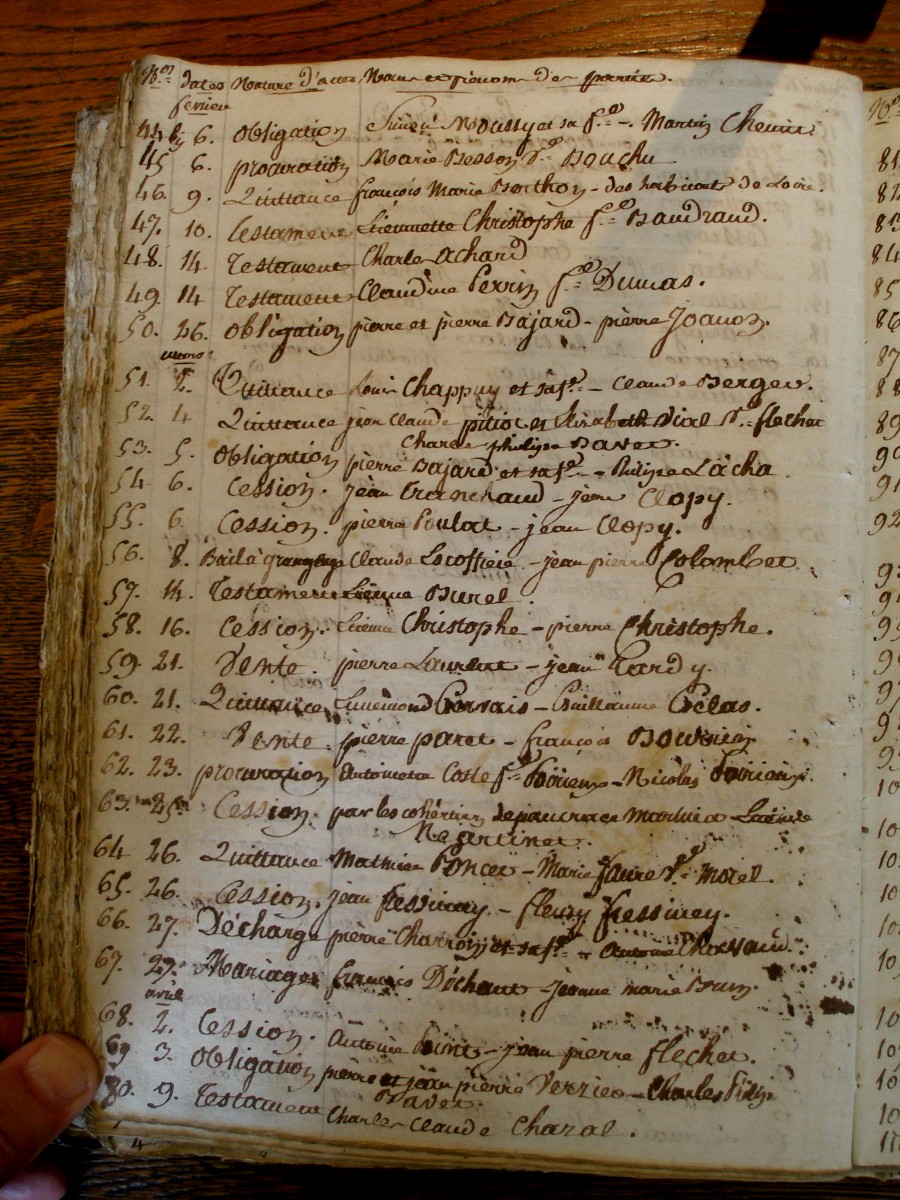 Nos dates Nature d'actes Noms et prenoms des parties.
fevrier
44 6. obligation Moussy et sa fe. - Martin
45 6. procuration Marie Besson Ve Bouchu
46. 9. Quittance françois Marie Berthon - des habitants de Loire.
47. 10. testament Etiennette Christophe fe Baudrand.
48. 14 testament Charle achard
49. 14 testament Claudine Perrin fe Dumas.
50. 26. obligation pierre et pierre Bajard - pierre Joanon.
mars
51. 2. Quittance Louis Chappuy et sa fe. - Claude Berger.
52. 4 Quittance jean Claude pitiot et Elizabeth Vial Ve flechet
Charle philipe Davet.
53. 5. obligation pierre Bajard et sa fe - Philipe Lâcha
54 6. Cession. jean Cranchand - jean Clopy.
55. 6. Cession. pierre Poulat - jean Clopy.
56. 8. Bail à grangeage Claude - jean pierre Colombet.
57. 14. Testament Etienne Burel.
58. 16. Cession. Etienne Christophe - pierre Christophe.
59. 21. Vente. pierre Laurent - jean Tardy.
60. 21. Quittance Ennemond Gervais - Guillaume Gélas.
61. 22. Vente. pierre paret - françois
62. 23. procuration Antoinette Coste fe - Nicolas
63. 25. Cession. par les cohéritiers de pancrace
64 26. Quittance Mathieu Poncet - Marie faure Ve Morel.
65. 26. Cession. jean fessimey. - fleury fressiney.
66. 27. Décharge pierre et sa fe - antoine
67. 29. Mariage françois Déchaut - jeanne marie Brun.
avril
68. 2. Cession. Antoine - jean pierre flechet.
69 3. obligation pierre et jean pierre Verzieu - Charles
Davet.
80. 9. Testament Charles Claude Chazal.
N
81
82
83
84
85
86
87
88
89
90
91
92